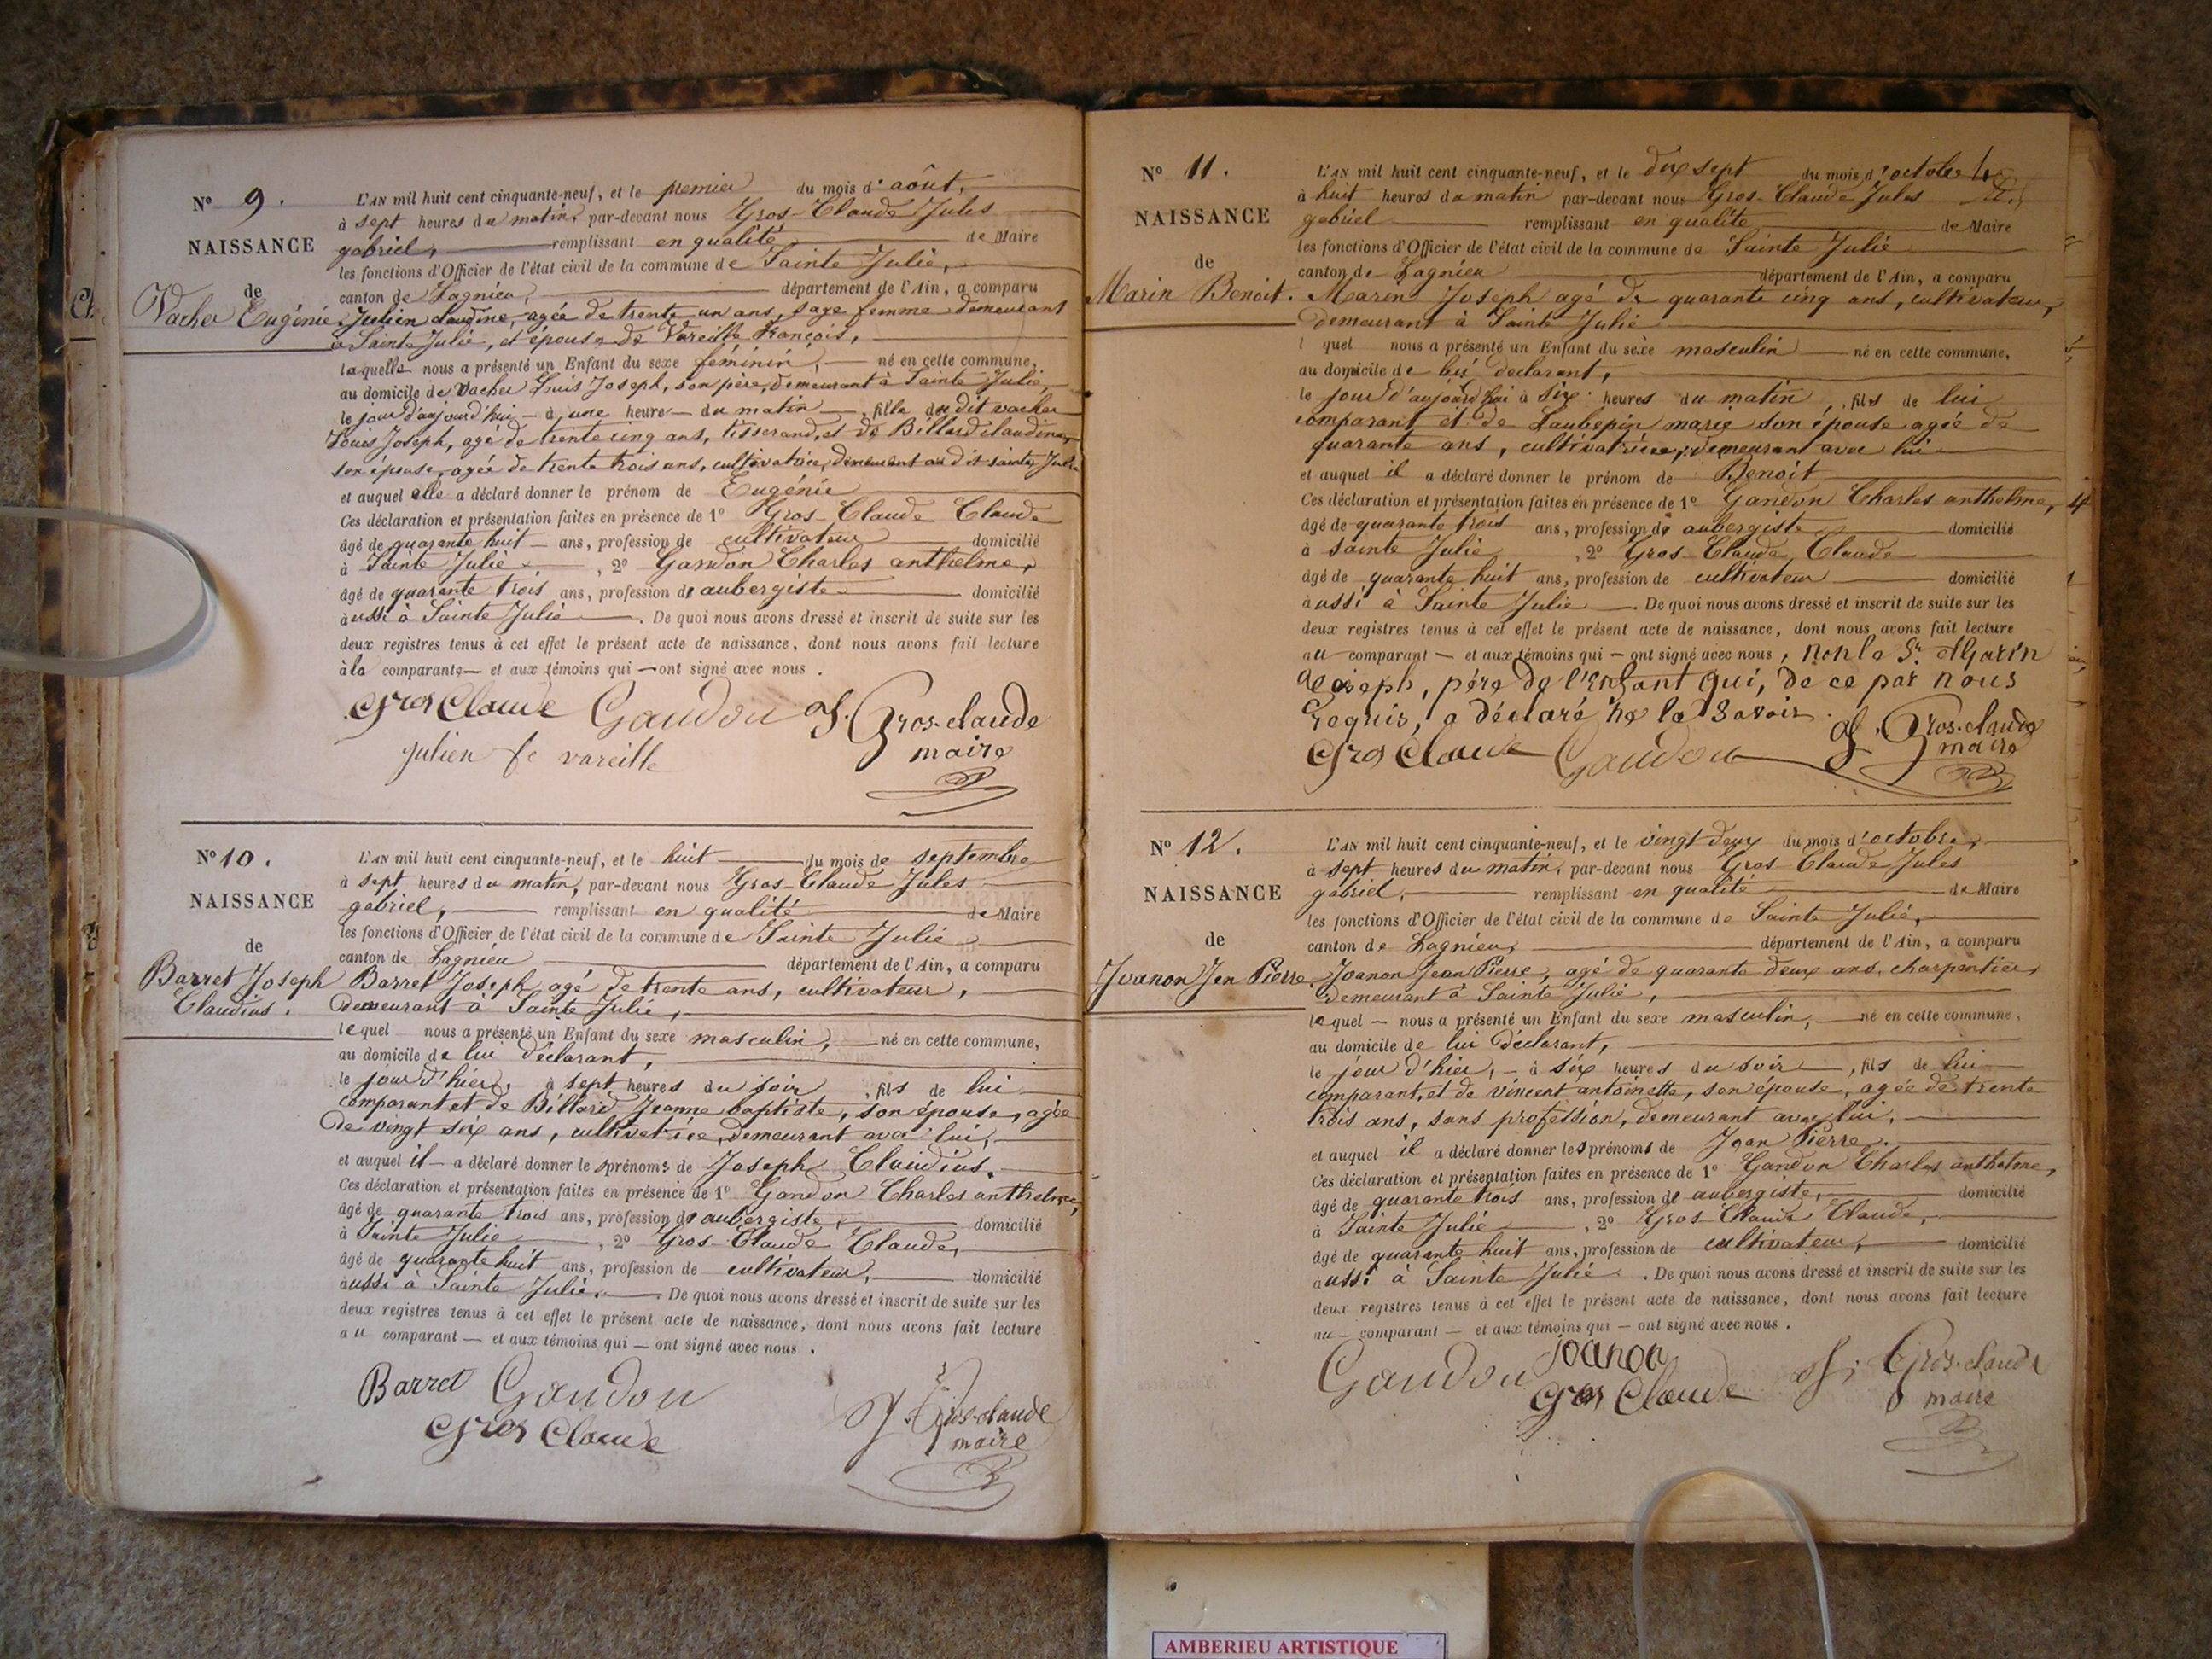 Nº 9.
NAISSANCE
de
Vacher Eugénie
L'AN mil huit cent cinquante-neuf, et le premier du mois d'août,
à sept heures du matin, par-devant nous Gros-Claude Jules
gabriel, remplissant en qualité de Maire
les fonctions d'Officier de l'état civil de la commune de Sainte Julie,
canton de Lagnieu, département de l'Ain, a comparu
Julien claudine, agée de trente un ans, sage femme demeurant
à Sainte Julie, et épouse de Vareille François,
laquelle nous a présenté un Enfant du sexe féminin, né en cette commune,
au domicile de Vacher Louis Joseph, son père, demeurant à Sainte Julie,
le jour d'aujourd'hui, à une heure du matin, fille du dit vacher
Louis Joseph, agé de trente cinq ans, tisserand, et de Billard claudine,
son épouse, agée de trente trois ans, cultivatrice, demeurant au dit sainte Julie
et auquel elle a déclaré donner le prénom de Eugénie
Ces déclaration et présentation faites en présence de 1º Gros-Claude Claude
âgé de quarante huit ans, profession de cultivateur domicilié
à Sainte Julie, 2º Gandon Charles anthelme,
âgé de quarante trois ans, profession de aubergiste domicilié
aussi à Sainte Julie. De quoi nous avons dressé et inscrit de suite sur les
deux registres tenus à cet effet le présent acte de naissance, dont nous avons fait lecture
à la comparante et aux témoins qui ont signé avec nous.
Gros Claude Gandon J. Gros-claude
julien fe vareille maire
Nº 10.
NAISSANCE
de
Barret Joseph
Claudius.
L'AN mil huit cent cinquante-neuf, et le huit du mois de septembre
à sept heures du matin, par-devant nous Gros-Claude Jules
gabriel, remplissant en qualité de Maire
les fonctions d'Officier de l'état civil de la commune de Sainte Julie
canton de Lagnieu département de l'Ain, a comparu
Barret Joseph, agé de trente ans, cultivateur,
demeurant à Sainte Julie,
lequel nous a présenté un Enfant du sexe masculin, né en cette commune,
au domicile de lui déclarant,
le jour d'hier, à sept heures du soir, fils de lui
comparant et de Billard Jeanne baptiste, son épouse, agée
de vingt six ans, cultivatrice, demeurant avec lui,
et auquel il a déclaré donner les prénoms de Joseph Claudius.
Ces déclaration et présentation faites en présence de 1º Gandon Charles anthelme,
âgé de quarante trois ans, profession de aubergiste, domicilié
à Sainte Julie, 2º Gros-Claude Claude,
âgé de quarante huit ans, profession de cultivateur, domicilié
aussi à Sainte Julie. De quoi nous avons dressé et inscrit de suite sur les
deux registres tenus à cet effet le présent acte de naissance, dont nous avons fait lecture
au comparant et aux témoins qui ont signé avec nous.
Barret Gandon
Gros Claude J. Gros-claude
maire
Nº 11.
NAISSANCE
de
Marin Benoit.
L'AN mil huit cent cinquante-neuf, et le dix sept du mois d'octobre
à huit heures du matin par-devant nous Gros-Claude Jules
gabriel remplissant en qualité de Maire
les fonctions d'Officier de l'état civil de la commune de Sainte Julie
canton de Lagnieu département de l'Ain, a comparu
Marin Joseph agé de quarante cinq ans, cultivateur,
demeurant à Sainte Julie
lequel nous a présenté un Enfant du sexe masculin né en cette commune,
au domicile de lui déclarant,
le jour d'aujourd'hui à six heures du matin, fils de lui
comparant et de Laubepin marie son épouse agée de
quarante ans, cultivatrice, demeurant avec lui
et auquel il a déclaré donner le prénom de Benoit
Ces déclaration et présentation faites en présence de 1º Gandon Charles anthelme,
âgé de quarante trois ans, profession de aubergiste domicilié
à sainte Julie, 2º Gros-Claude Claude
âgé de quarante huit ans, profession de cultivateur domicilié
aussi à Sainte Julie. De quoi nous avons dressé et inscrit de suite sur les
deux registres tenus à cet effet le présent acte de naissance, dont nous avons fait lecture
au comparant et aux témoins qui ont signé avec nous, non le Sr. Marin
Joseph, père de l'Enfant qui, de ce par nous
requis, a déclaré ne le savoir.
Gros Claude Gandon J. Gros-claude
maire
Nº 12.
NAISSANCE
de
Joanon Jen Pierre.
L'AN mil huit cent cinquante-neuf, et le vingt deux du mois d'octobre,
à sept heures du matin, par-devant nous Gros-Claude Jules
gabriel, remplissant en qualité de Maire
les fonctions d'Officier de l'état civil de la commune de Sainte Julie,
canton de Lagnieu, département de l'Ain, a comparu
Joanon Jean Pierre, agé de quarante deux ans, charpentier,
demeurant à Sainte Julie,
lequel nous a présenté un Enfant du sexe masculin, né en cette commune,
au domicile de lui déclarant,
le jour d'hier, à six heures du soir, fils de lui
comparant, et de vincent antoinette, son épouse, agée de trente
trois ans, sans profession, demeurant avec lui,
et auquel il a déclaré donner les prénoms de Jean Pierre.
Ces déclaration et présentation faites en présence de 1º Gandon Charles anthelme,
âgé de quarante trois ans, profession de aubergiste, domicilié
à Sainte Julie, 2º Gros-Claude Claude,
âgé de quarante huit ans, profession de cultivateur, domicilié
aussi à Sainte Julie. De quoi nous avons dressé et inscrit de suite sur les
deux registres tenus à cet effet le présent acte de naissance, dont nous avons fait lecture
au comparant et aux témoins qui ont signé avec nous.
Gandon joanon J. Gros-claude
Gros Claude maire
AMBERIEU ARTISTIQUE